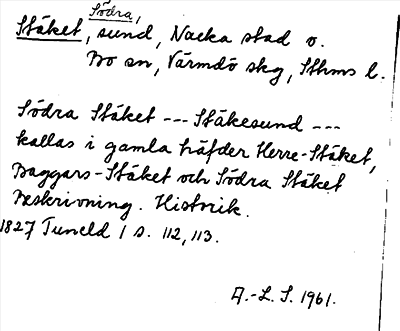 Stäket, Södra, sund, Nacka stad o.
Bo sn, Värmdö skg, Sthms l.
Södra Stäket --- Stäkesund ---
kallas i gamla häfder Herre-Stäket,
Baggars-Stäket och Södra Stäket
Beskrivning. Historik.
1827 Tuneld 1 s. 112, 113.
A.-L. S. 1961.